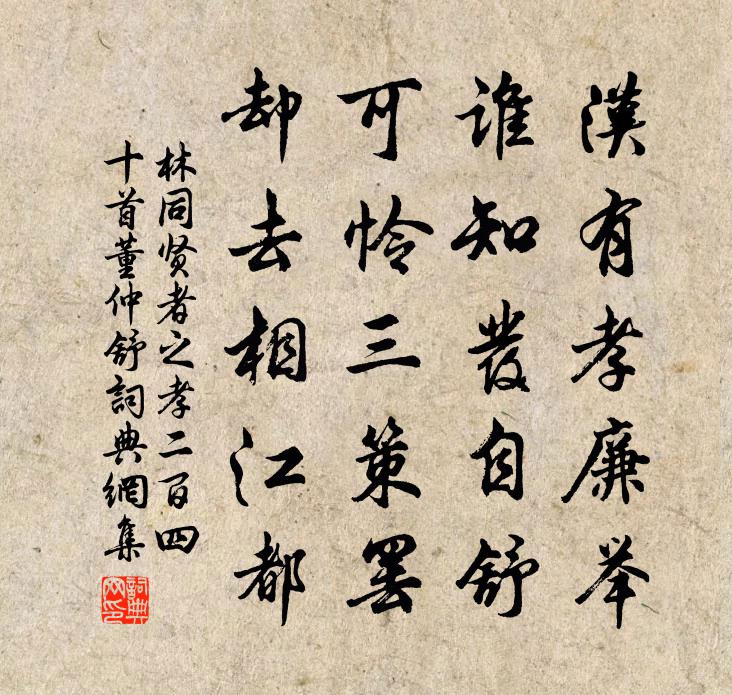 漢有孝廉举
谁知發自舒
可怜三策罢
却去相江都
林同贤者之孝二百四
十首董仲舒詞典網集
詞典
网印